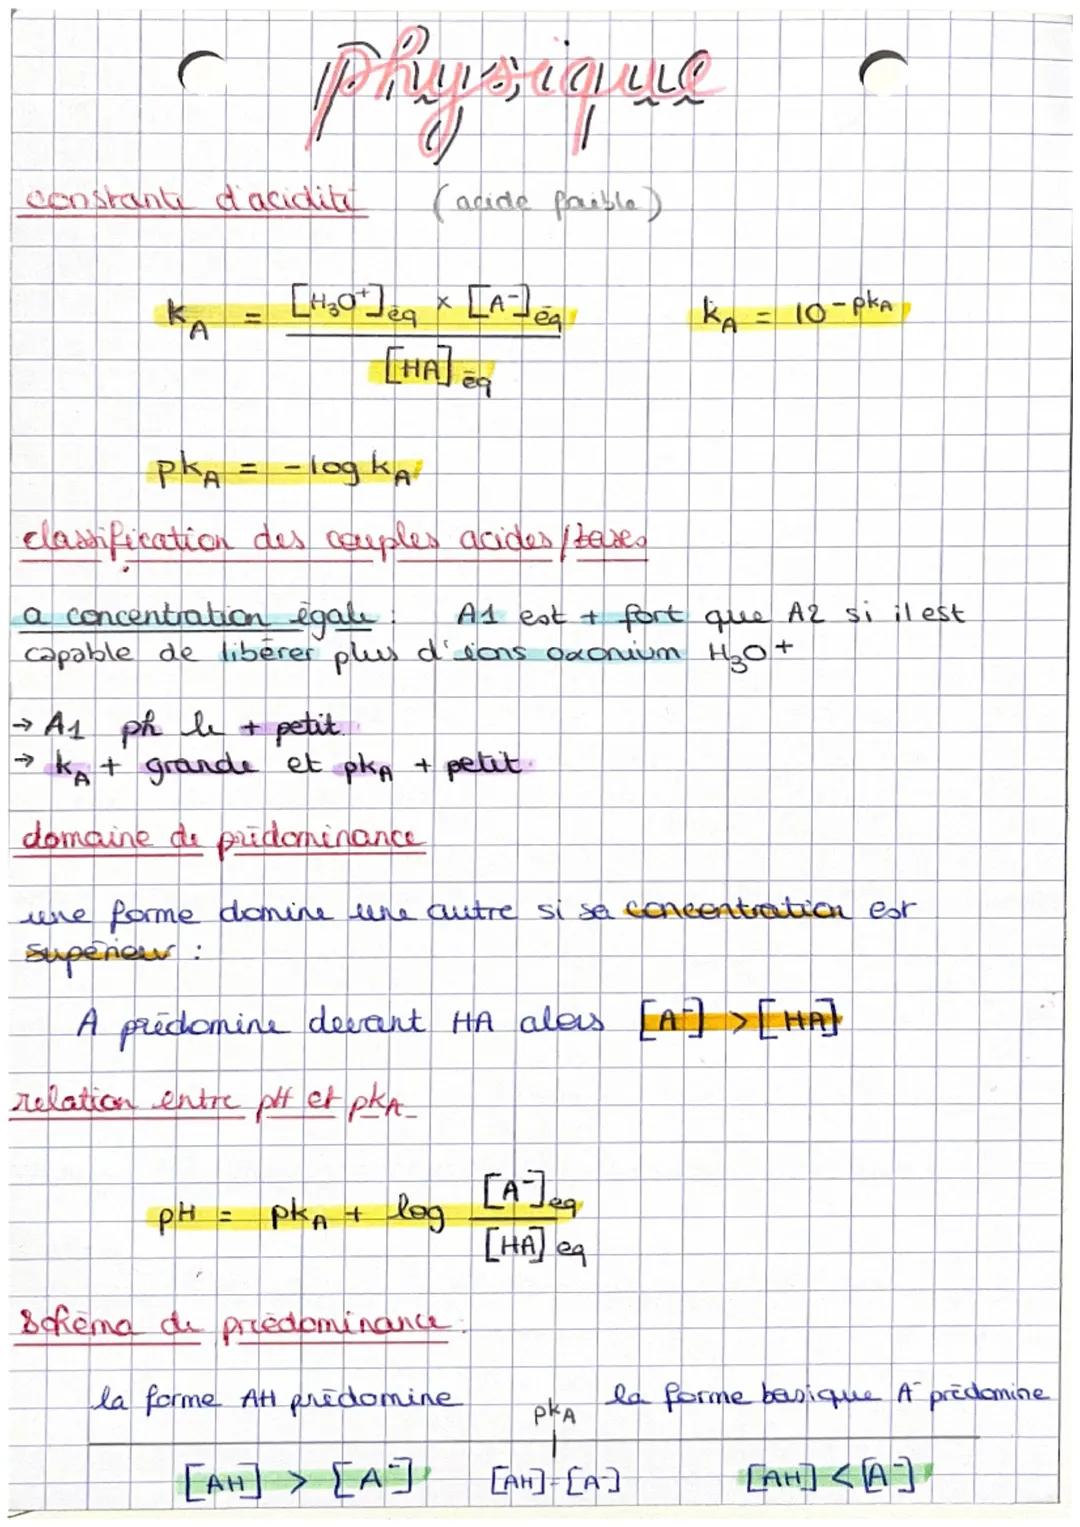 physique
constante d'acidité (acide faible)
k_A = [H₃O⁺]éq × [A⁻]éq / [HA]éq k_A = 10^-pk_A
pk_A = -log k_A
classification des couples acides/bases
a concentration égale : A1 est + fort que A2 si il est
capable de libérer plus d'ions oxonium H₃O+
→ A1 ph le + petit.
→ k_A + grande et pk_A + petit.
domaine de prédominance
une forme domine une autre si sa concentration est
supérieur :
A prédomine devant HA alors [A⁻] > [HA]
relation entre pH et pk_A
pH = pk_A + log [A⁻]eq / [HA]eq
Schéma de prédominance.
la forme AH prédomine pk_A la forme basique A⁻ prédomine
[AH] > [A⁻] [AH]-[A⁻] [AH] < [A⁻]